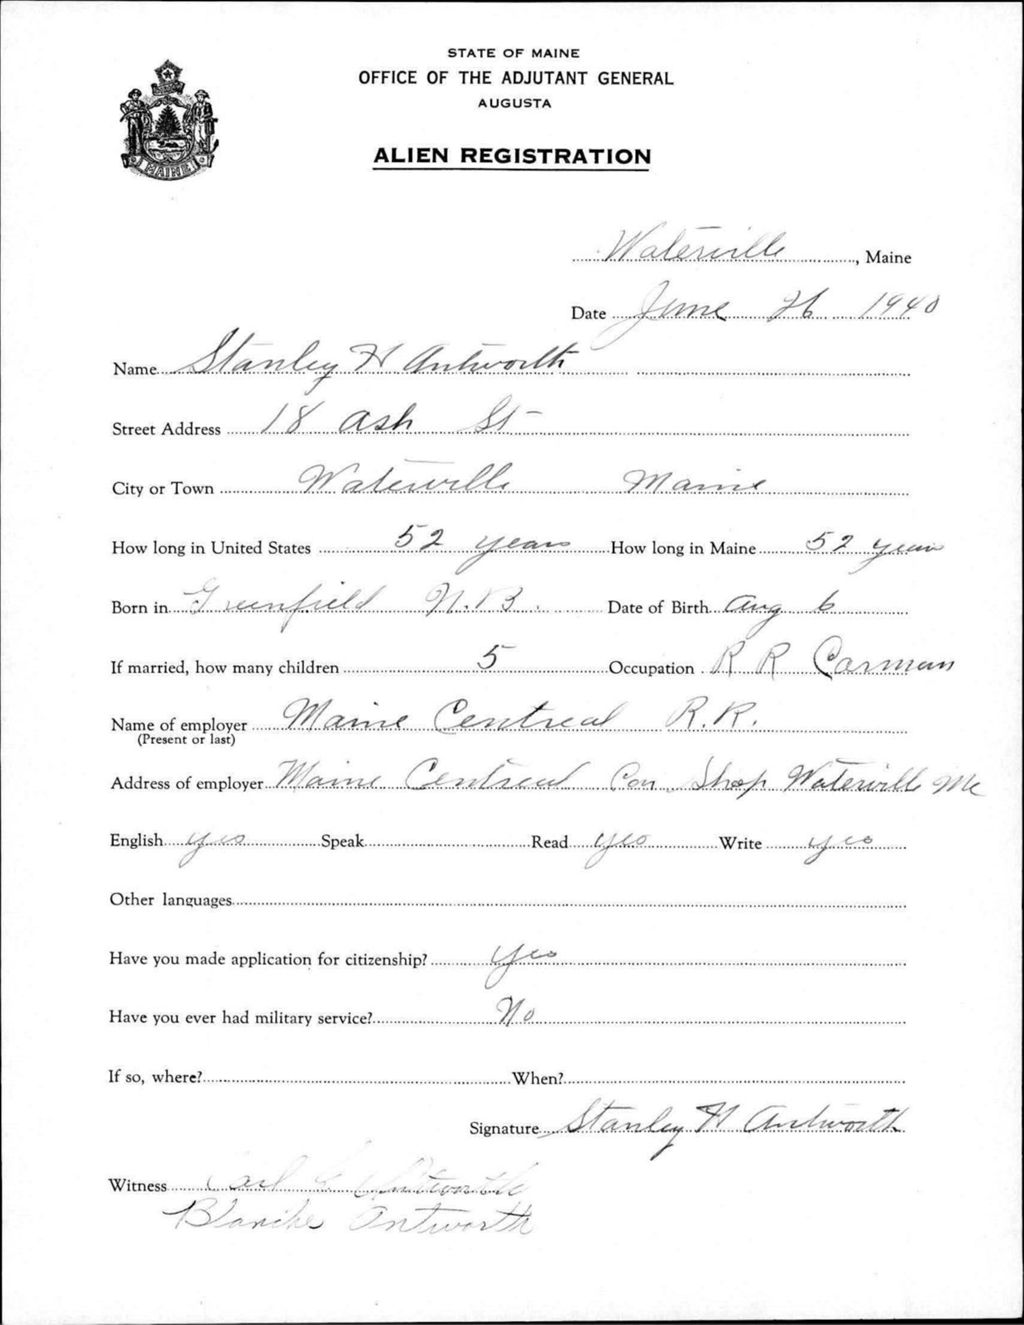 STATE OF MAINE
OFFICE OF THE ADJUTANT GENERAL
AUGUSTA
ALIEN REGISTRATION
MAINE
Waterville, Maine
Date June 26 1940
Name Stanley H Antworth
Street Address 18 Ash St
City or Town Waterville Maine
How long in United States 52 years How long in Maine 52 years
Born in Greenfield N.B. Date of Birth Aug 6
If married, how many children 5 Occupation R R Carman
Name of employer Maine Centreal R.R.
(Present or last)
Address of employer Maine Centreal Car Shop Waterville Me
English yes Speak Read yes Write yes
Other languages
Have you made application for citizenship? Yes
Have you ever had military service? No
If so, where? When?
Signature Stanley H Antworth
Witness Carl Antworth
Blanche Antworth